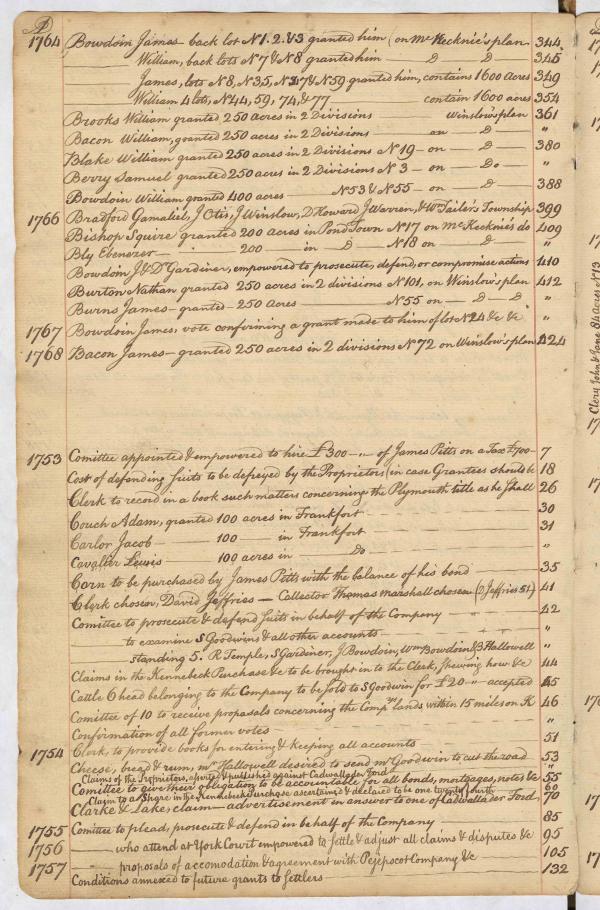 1764 Bowdoin James back lot N 1. 2. & 3 granted him (on Mc Kecknie's plan 344
William, back lots N 7 & N 8 granted him — D — D — 345
James, lots N 8, N 35, N 47 & N 59 granted him, contains 1600 Acres 349
William 4 lots, N 44, 59, 74, & 77 — contain 1600 acres 354
Brooks William granted 250 acres in 2 Divisions — Winslow's plan 361
Bacon William, granted 250 acres in 2 Divisions — on — D — "
Blake William granted 250 acres in 2 Divisions N 19 — on — D — 380
Berry Samuel granted 250 acres in 2 Divisions N 3 — on — Do — "
Bowdoin William granted 400 acres — N 53 & N 55 — on — D — 388
1766 Bradford Gamaliel, J Otis, J Winslow, D Howard J Warren, & Wm Tailer's Township 399
Bishop Squire granted 200 Acres in Pond Town N 17 on Mc Kecknie's do 409
Bly Ebenezer — 200 — in — D — N 18 on — D — "
Bowdoin J & D Gardiner, empowered to prosecute, defend, or compromise actions 410
Burton Nathan granted 250 acres in 2 divisions N 101, on Winslow's plan 412
Burns James — granted — 250 Acres — N 55 on — D — D "
1767 Bowdoin James, vote confirming a grant made to him of lot N 24 &c &c "
1768 Bacon James — granted 250 acres in 2 divisions N 72 on Winslow's plan 424
1753 Comittee appointed & empowered to hire £300 — " — of James Pitts on a Tax £700 — 7
Cost of defending suits to be defreyed by the Proprietors (in case Grantees should be 18
Clerk to record in a book such matters concerning the Plymouth title as he shall 26
Couch Adam, granted 100 acres in Frankfort — 30
Carlor Jacob — 100 — in Frankfort — 31
Cavalier Lewis — 100 acres in — Do — "
Corn to be purchased by James Pitts with the balance of his bond — 35
Clerk chosen, David Jeffries — Collector Thomas Marshall chosen (D Jeffries 51) 41
Comittee to prosecute & defend suits in behalf of the Company — 42
to examine S Goodwins & all other accounts — "
standing 5. R Temple, S Gardiner, J Bowdoin, Wm Bowdoin & B Hallowell "
Claims in the Kennebeck Purchase &c to be brought in to the Clerk, shewing how &c 44
Cattle 6 head belonging to the Company to be sold to S Goodwin for £20 — " — accepted 45
Comittee of 10 to receive proposals concerning the Compys lands, within 15 miles on K 46
Confirmation of all former votes — "
1754 Clerk, to provide books for entering & keeping all accounts — 51
Cheese, bread & rum, Mr Hallowell desired to send Mr Goodwin to cut the road 53
Claims of the Proprietors, asserted & published against Cadwallader Ford "
Comittee to give their obligation to be accountable for all bonds, mortgages, notes &c 55
Claim to a Share in the Kennebeck purchase ascertained & declared to be one twenty fourth 60
Clarke & Lake, claim — advertisement in answer to one of Cadwallader Ford, 70
1755 Comittee to plead, prosecute & defend in behalf of the Company — 85
1756 — who attend at York Court empowered to settle & adjust all claims & disputes &c 95
1757 — proposals of accomodation & agreement with Pejepscot Company &c 105
Conditions annexed to future grants to settlers — 132
Clery John & Jane 84 acres N 13